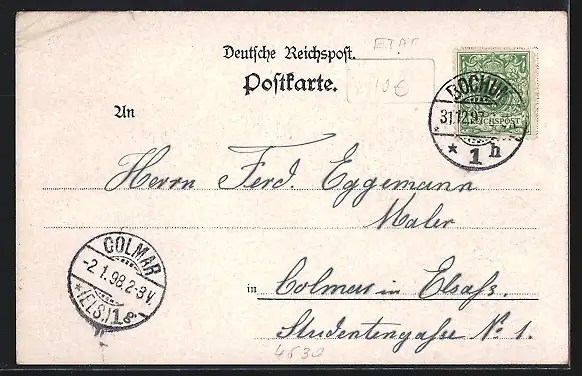 Deutsche Reichspost.
Postkarte.
10€
BOCHUM
31.12.97
* 1 h
REICHSPOST
An
Herrn Ferd. Eggemann
Maler
in Colmar in Elsaß.
Studentengasse No. 1.
COLMAR
-2.1.98.2-3V.
*(ELS.)1a
4630